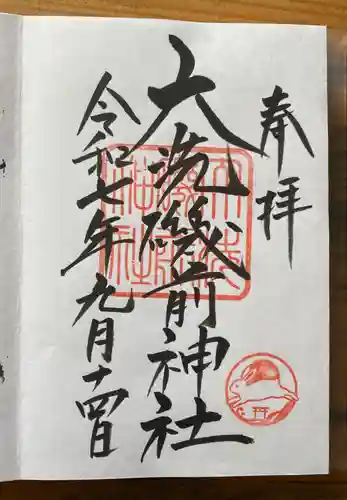 奉拝
大洗磯前神社
令和七年九月十四日